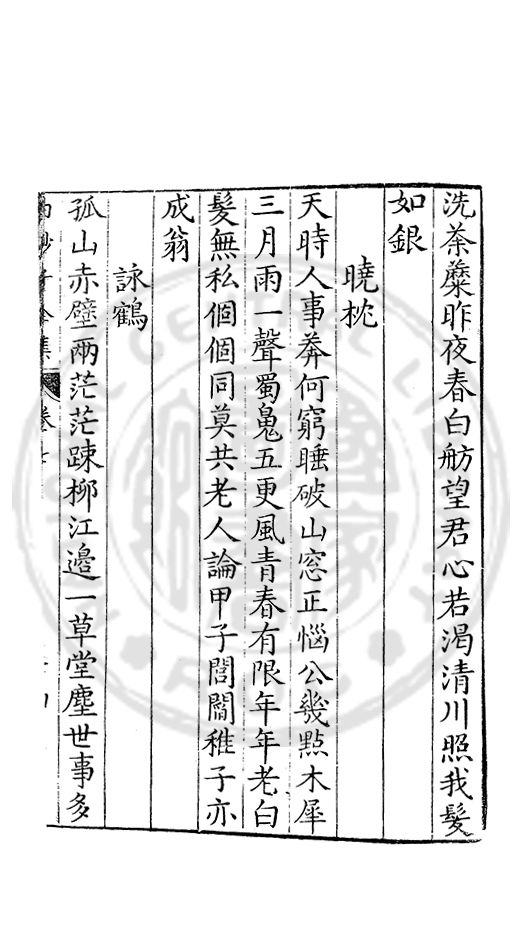 洗荼蘼昨夜春白舫望君心若渴清川照我髮
如銀
曉枕
天時人事莽何窮睡破山窓正惱公幾點木犀
三月雨一聲蜀鬼五更風青春有限年年老白
髮無私個個同莫共老人論甲子閭閻稚子亦
成翁
詠鶴
孤山赤壁兩茫茫踈柳江邊一草堂塵世事多